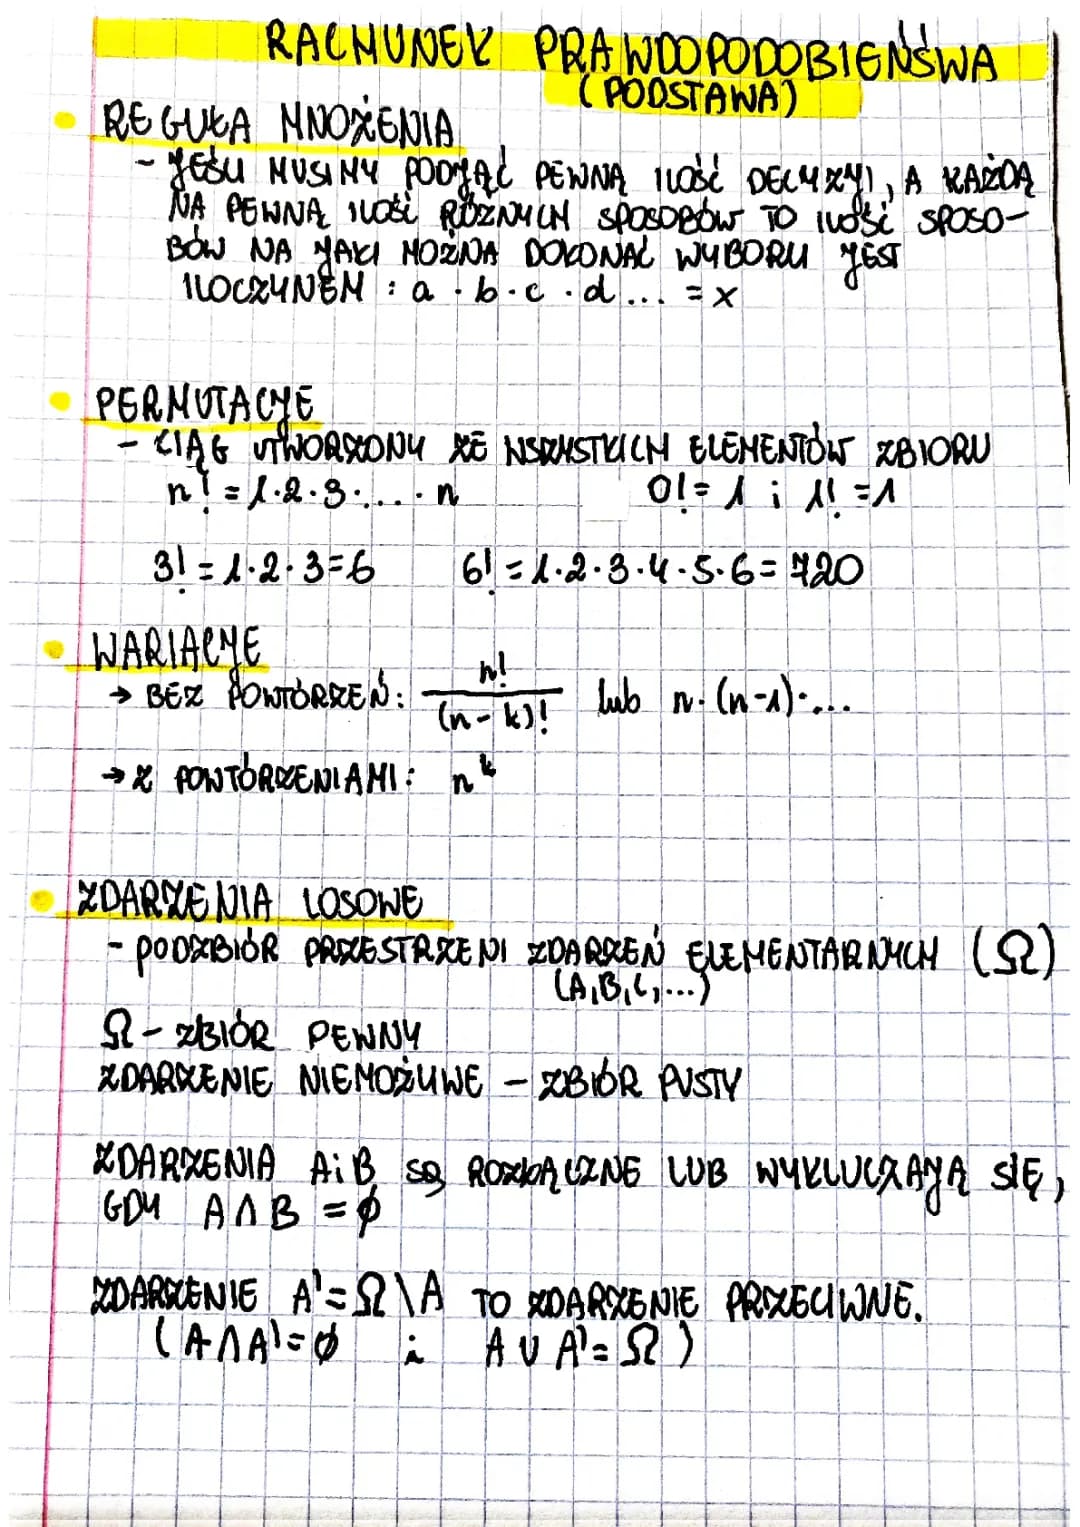 RACHUNEK PRAWDOPODOBIEŃSWA
(PODSTAWA)
REGUŁA MNOŻENIA
- JEŚLI MUSIMY PODJĄĆ PEWNĄ ILOŚĆ DECYZYJI, A KAŻDĄ
NA PEWNĄ ILOŚĆ RÓŻNYCH SPOSOBÓW TO ILOŚĆ SPOSO-
BÓW NA JAKI MOŻNA DOKONAĆ WYBORU JEST
ILOCZYNEM : a · b · c · d ... = x
PERMUTACJE
- CIĄG UTWORZONY ZE WSZYSTKICH ELEMENTÓW ZBIORU
n! = 1·2·3·...·n 0! = 1 i 1! = 1
3! = 1·2·3=6 6! = 1·2·3·4·5·6=720
WARIACJE
→ BEZ POWTÓRZEŃ: n!/(n-k)! lub n·(n-1)·...
→ Z POWTÓRZENIAMI: n^k
ZDARZENIA LOSOWE
- PODZBIÓR PRZESTRZENI ZDARZEŃ ELEMENTARNYCH (Ω)
(A,B,C,...)
Ω - ZBIÓR PEWNY
ZDARZENIE NIEMOŻLIWE - ZBIÓR PUSTY
ZDARZENIA A i B są ROZŁĄCZNE LUB WYKLUCZAJĄ SIĘ,
GDY A∩B = ∅
ZDARZENIE A'=Ω\A TO ZDARZENIE PRZECIWNE.
(A∩A'=∅ i A∪A'=Ω)